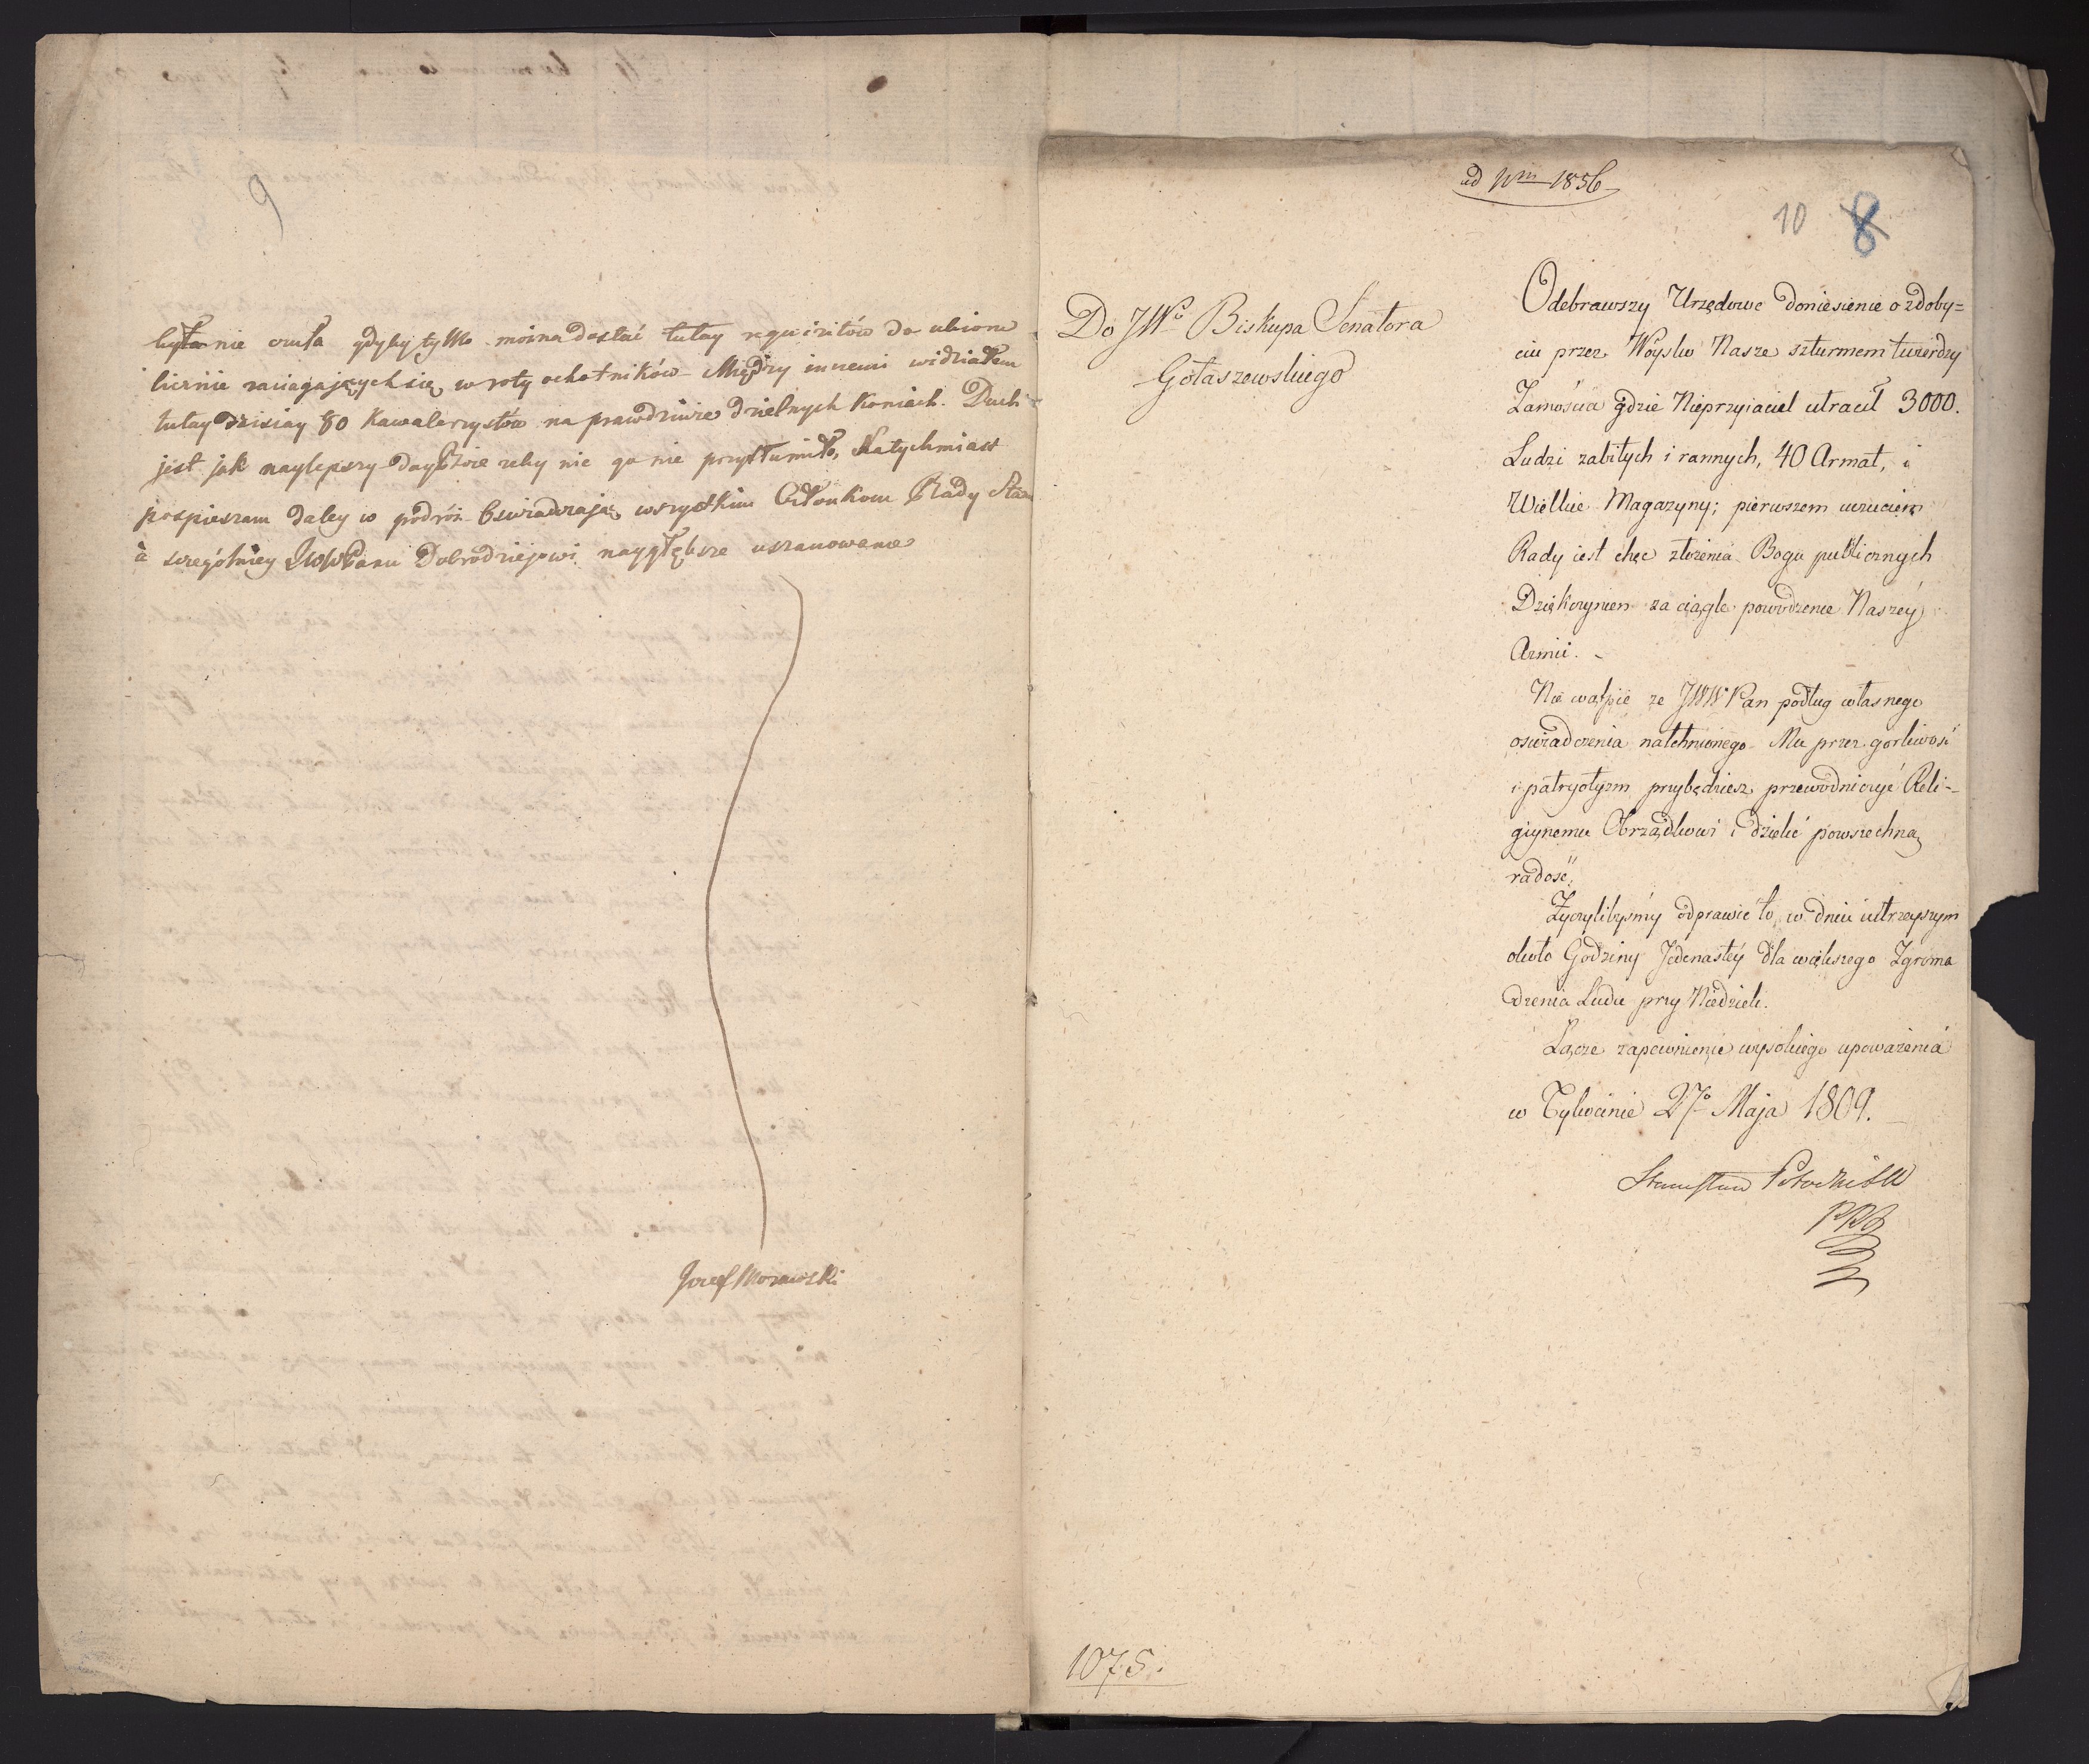 9
była nie czuła gdyby tylko można dostać tutay rquizitów do ubioru
licznie zaciągających się w roty ochotników Między innemi widziałem
tutay dzisiay 80 kawalerzystów na prawdziwie dzielnych koniach. Duch
jest jak naylepszy day Boże żeby nic go nie przytłumiło, Natychmiast
pospieszam daley w podróż oswiadczając wszystkim Członkom Rady Stanu
a szczególniey JWWPanu Dobrodziejowi naygłębsze uszanowanie
Jozef Morawski
ad Num 1856
10 8
Do JWo Biskupa Senatora
Gołaszewskiego
Odebrawszy Urzędowe doniesienie o zdoby=
ciu przez Woysko Nasze szturmem twierdzy
Zamościa gdzie Nieprzyiaciel utracił 3000.
Ludzi zabitych i rannych, 40 Armat, i
Wielkie Magazyny; pierwszem uczuciem
Rady iest chęc złożenia Bogu publicznych
Dziękczynien za ciągle powodzenie Naszéy
Armii.
Nie wątpie ze JWW Pan podług własnego
oswiadczenia natchnionego Mu przez gorliwość
i patryotyzm przybędziesz przewodniczyć Reli-
giynemu Obrządkowi i dzielić powszechną
radość.
Zyczylibysmy odprawic to w dniu iutrzeyszym
około Godziny Jedenastéy dla większego Zgroma
dzenia Ludu przy Niedzieli.
Łącze zapewnienie wysokiego upoważenia
w Tykocinie 27o Maja 1809.
Stanisław Potocki
1075.